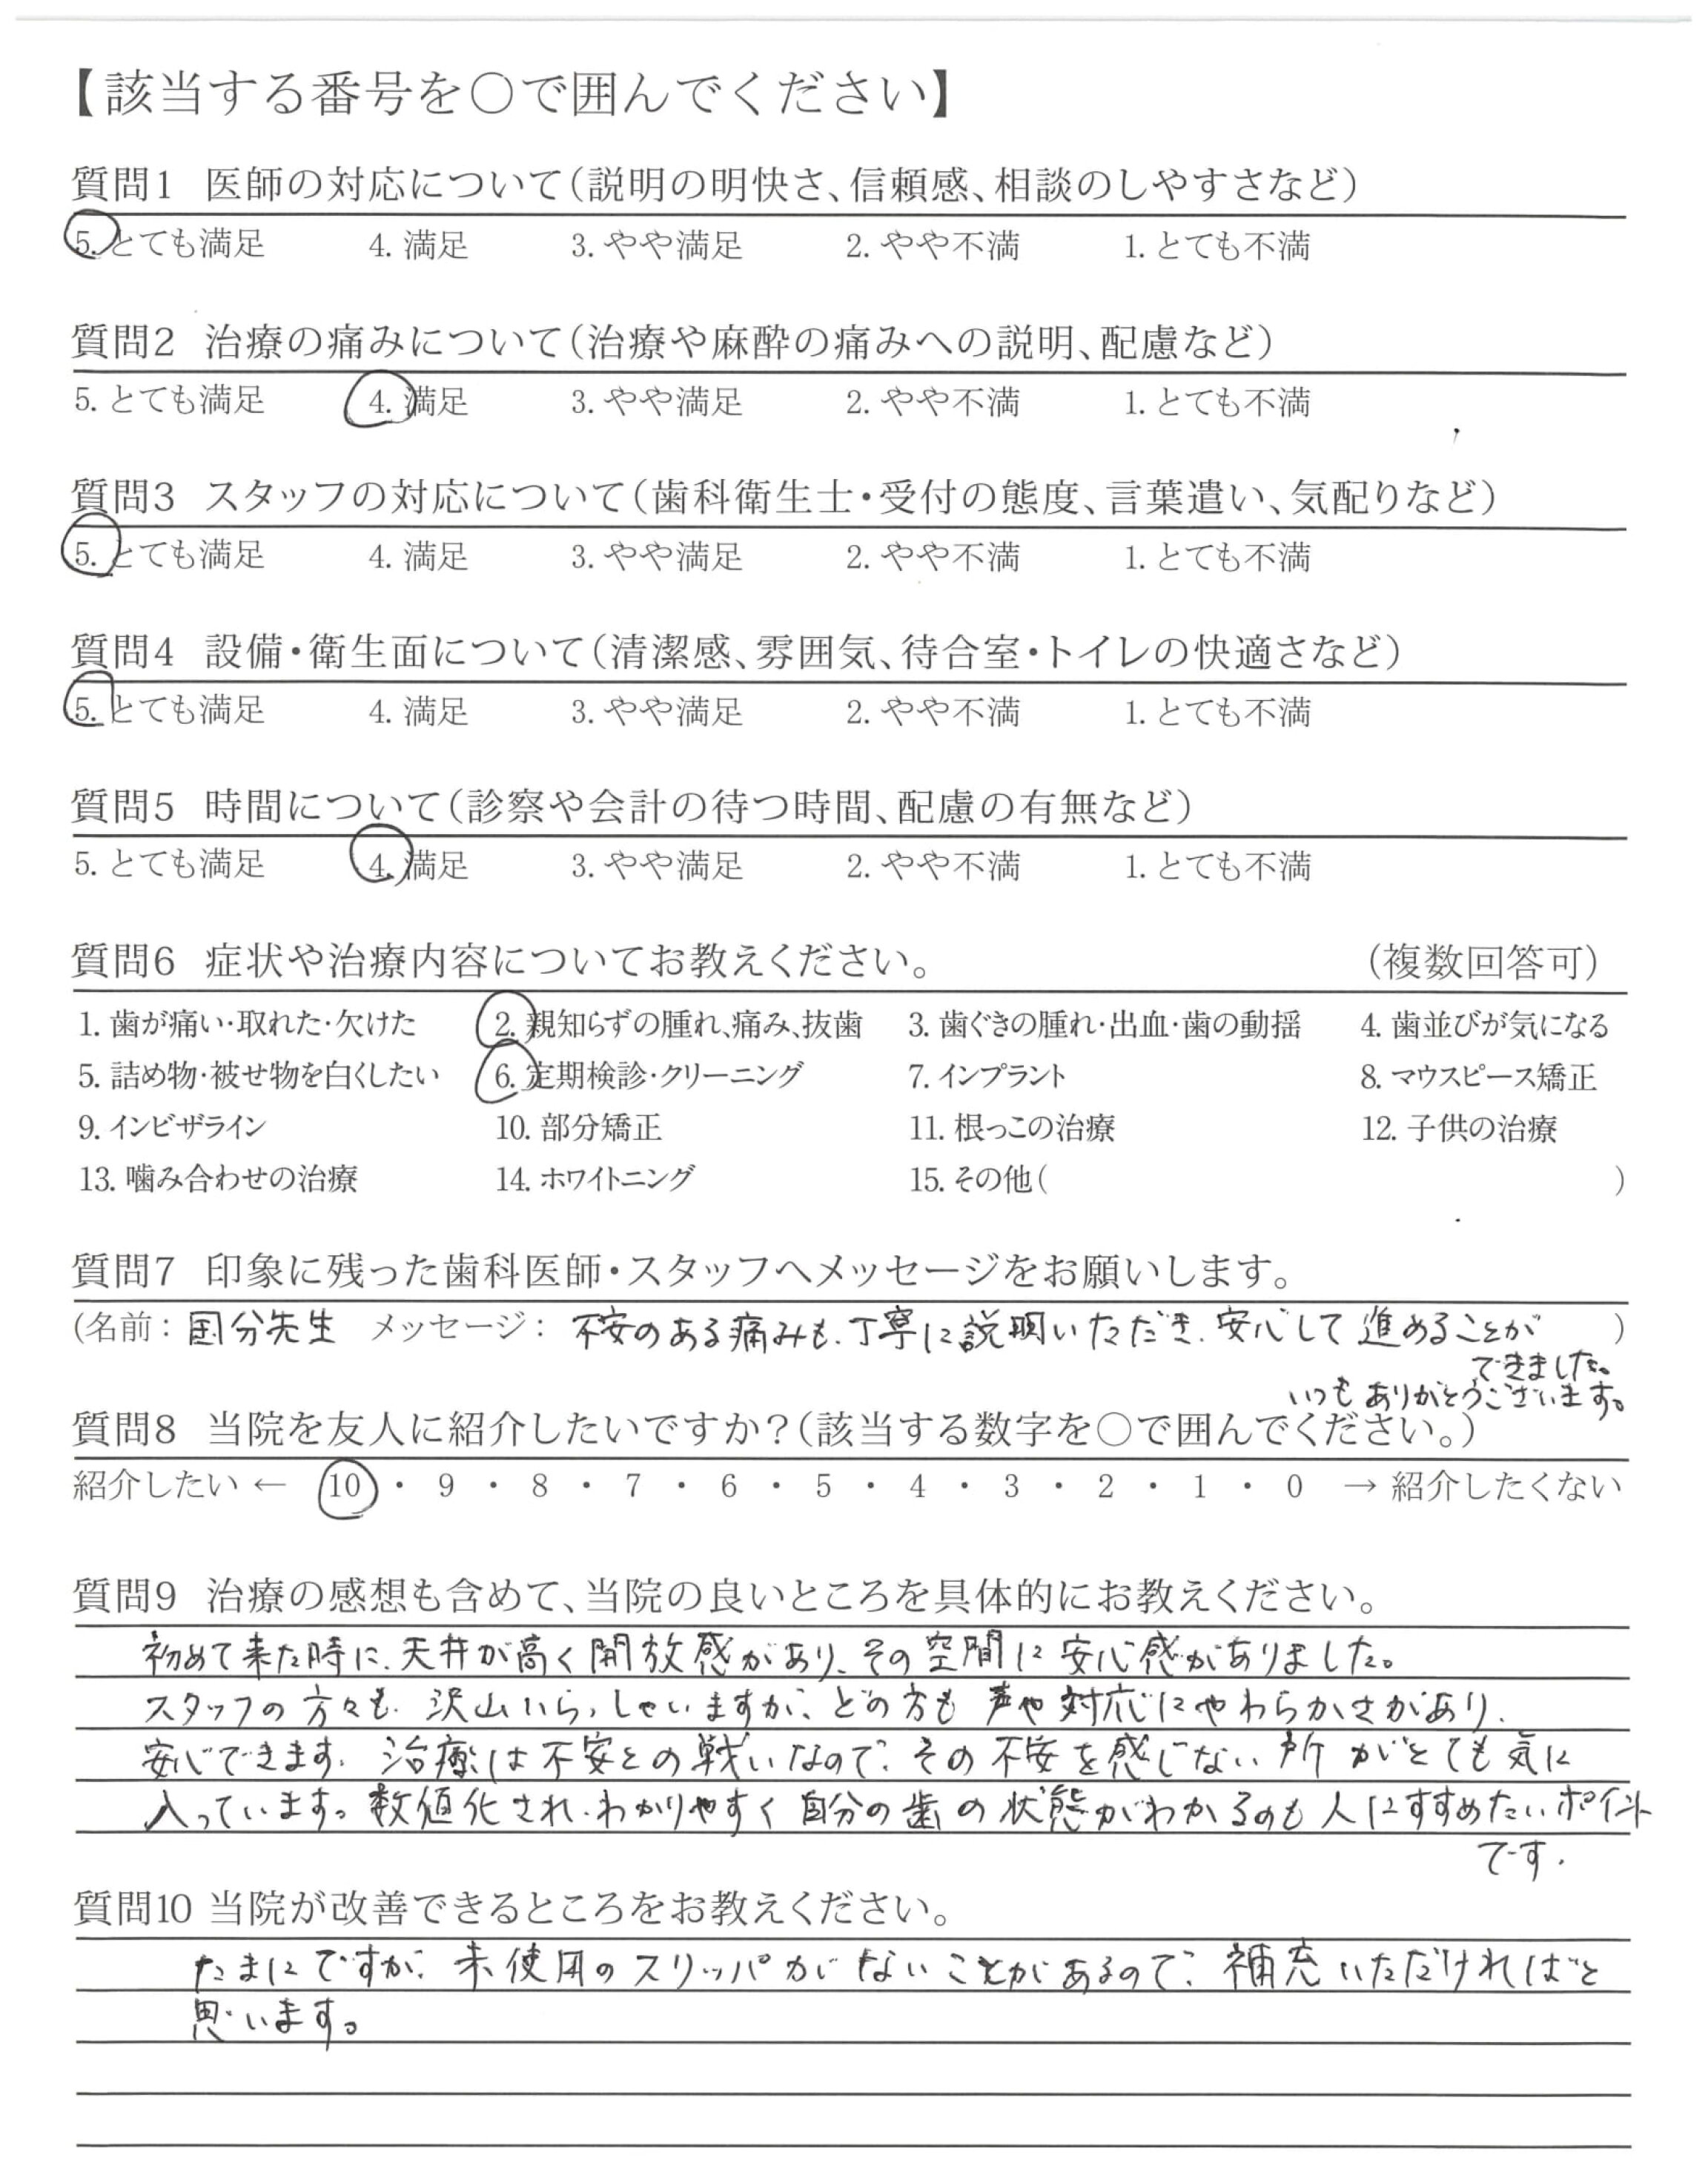 【該当する番号を○で囲んでください】
質問1 医師の対応について(説明の明快さ、信頼感、相談のしやすさなど)
5. とても満足 4. 満足 3. やや満足 2. やや不満 1. とても不満
質問2 治療の痛みについて(治療や麻酔の痛みへの説明、配慮など)
5. とても満足 4. 満足 3. やや満足 2. やや不満 1. とても不満
質問3 スタッフの対応について(歯科衛生士・受付の態度、言葉遣い、気配りなど)
5. とても満足 4. 満足 3. やや満足 2. やや不満 1. とても不満
質問4 設備・衛生面について(清潔感、雰囲気、待合室・トイレの快適さなど)
5. とても満足 4. 満足 3. やや満足 2. やや不満 1. とても不満
質問5 時間について(診察や会計の待つ時間、配慮の有無など)
5. とても満足 4. 満足 3. やや満足 2. やや不満 1. とても不満
質問6 症状や治療内容についてお教えください。 (複数回答可)
1. 歯が痛い・取れた・欠けた 2. 親知らずの腫れ、痛み、抜歯 3. 歯ぐきの腫れ・出血・歯の動揺 4. 歯並びが気になる
5. 詰め物・被せ物を白くしたい 6. 定期検診・クリーニング 7. インプラント 8. マウスピース矯正
9. インビザライン 10. 部分矯正 11. 根っこの治療 12. 子供の治療
13. 噛み合わせの治療 14. ホワイトニング 15. その他( )
質問7 印象に残った歯科医師・スタッフへメッセージをお願いします。
(名前: 国分先生 メッセージ: 不安のある痛みも、丁寧に説明いただき、安心して進めることが )
できました。
いつもありがとうございます。
質問8 当院を友人に紹介したいですか?(該当する数字を○で囲んでください。)
紹介したい ← 10 ・ 9 ・ 8 ・ 7 ・ 6 ・ 5 ・ 4 ・ 3 ・ 2 ・ 1 ・ 0 → 紹介したくない
質問9 治療の感想も含めて、当院の良いところを具体的にお教えください。
初めて来た時に、天井が高く開放感があり、その空間に安心感がありました。
スタッフの方々も、沢山いらっしゃいますが、どの方も声や対応にやわらかさがあり、
安心できます。治療は不安との戦いなので、その不安を感じない所がとても気に
入っています。数値化され、わかりやすく自分の歯の状態がわかるのも人にすすめたいポイント
です。
質問10 当院が改善できるところをお教えください。
たまにですが、未使用のスリッパがないことがあるので、補充いただければと
思います。